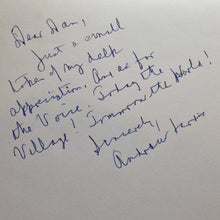 Dear Dan,
Just a small
token of my deep
appreciation. And as for
the Voice: Today the
Village! Tomorrow the World!
Sincerely,
Andrew